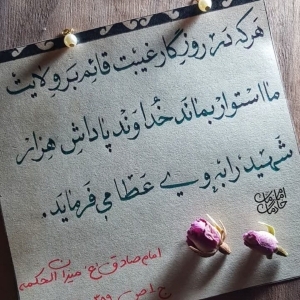 هرکه در روزگار غیبت قائم بر ولایت
ما استوار بماند خداوند پاداش هزار
شهید را به وی عطا می فرماید.
امام صادق (ع) میزان الحکمه
ج ۱ ص